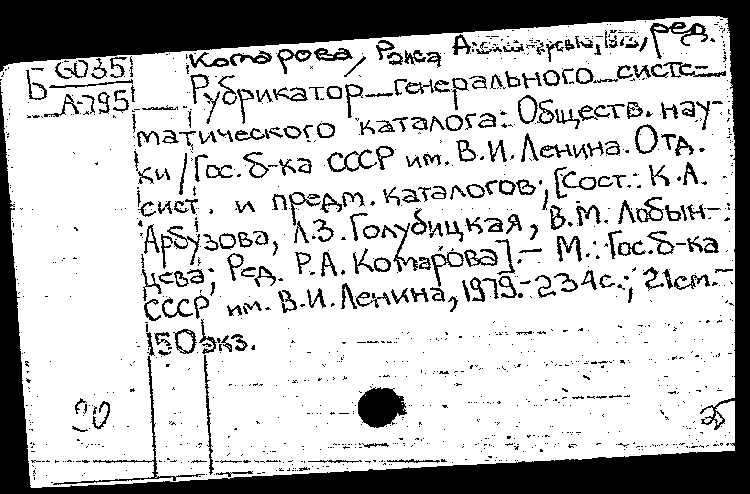 Комарова, Раиса Александровна, ред.
Б 6035
А-795
Рубрикатор Генерального систе-
матического каталога: Обществ. нау-
ки / Гос. б-ка СССР им. В.И. Ленина. Отд.
сист. и предм. каталогов; [Сост.: К.А.
Арбузова, Л.З. Голубицкая, В.М. Лобын-
цева; Ред. Р.А. Комарова]. - М.: Гос. б-ка
СССР им. В.И. Ленина, 1979. - 234с.; 21см. -
150 экз.
20